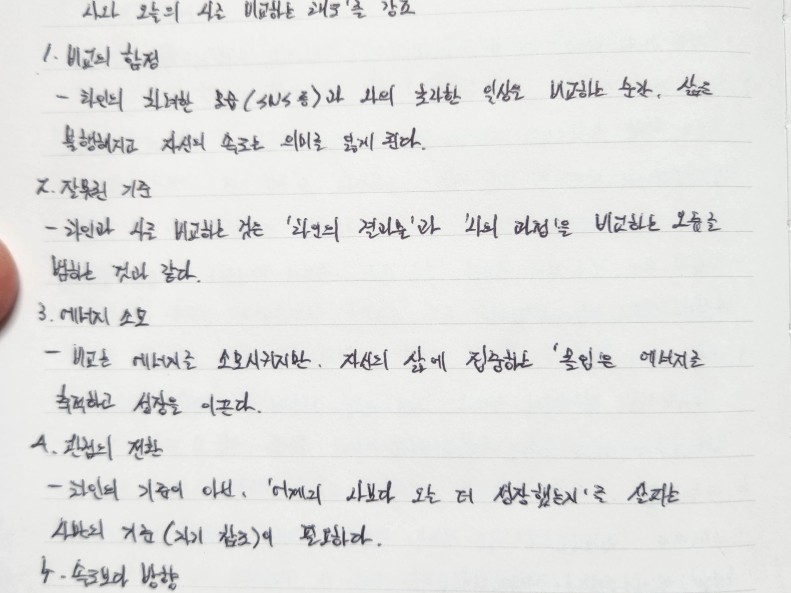 나와 오늘의 나를 비교하는 태도'를 강조
1. 비교의 함정
- 타인의 화려한 모습(SNS 등)과 나의 초라한 일상을 비교하는 순간, 삶은
불행해지고 자신의 속도는 의미를 잃게 된다.
2. 잘못된 기준
- 타인과 나를 비교하는 것은 '타인의 결과물'과 '나의 과정'을 비교하는 오류를
범하는 것과 같다.
3. 에너지 소모
- 비교는 에너지를 소모시키지만, 자신의 삶에 집중하는 '몰입'은 에너지를
축적하고 성장을 이끈다.
4. 관점의 전환
- 타인의 기준이 아닌, '어제의 나보다 오늘 더 성장했는지'를 살피는
나만의 기준(자기 참조)이 필요하다.
5. 속도보다 방향